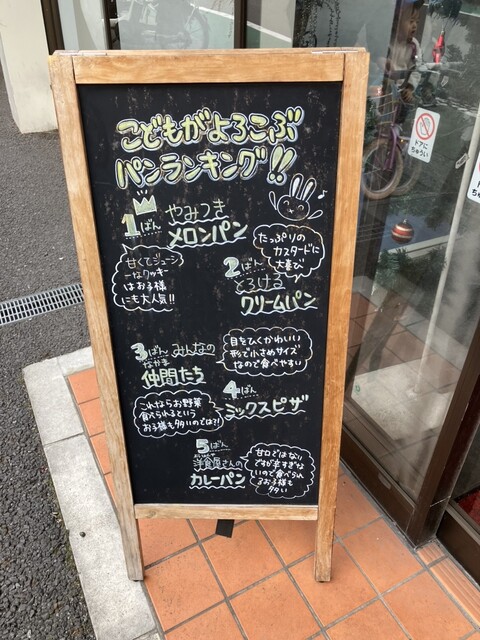 こどもがよろこぶ
パンランキング!!
1ばん やみつき
メロンパン
甘くてジューシ
ーなクッキー
はお子様
にも大人気!!
たっぷりの
カスタードに
大喜び
2ばん
とろける
クリームパン
3ばん みんなの
なかま
仲間たち
目をひくかわいい
形で小さめサイズ
なので食べやすい
4ばん
ミックスピザ
これならお野菜
食べられるという
お子様も多いのでは?!
5ばん
洋食屋さんの
カレーパン
甘口ではない
ですが辛すぎな
いので食べられ
るお子様も
多い
ドアに
ちゅうい